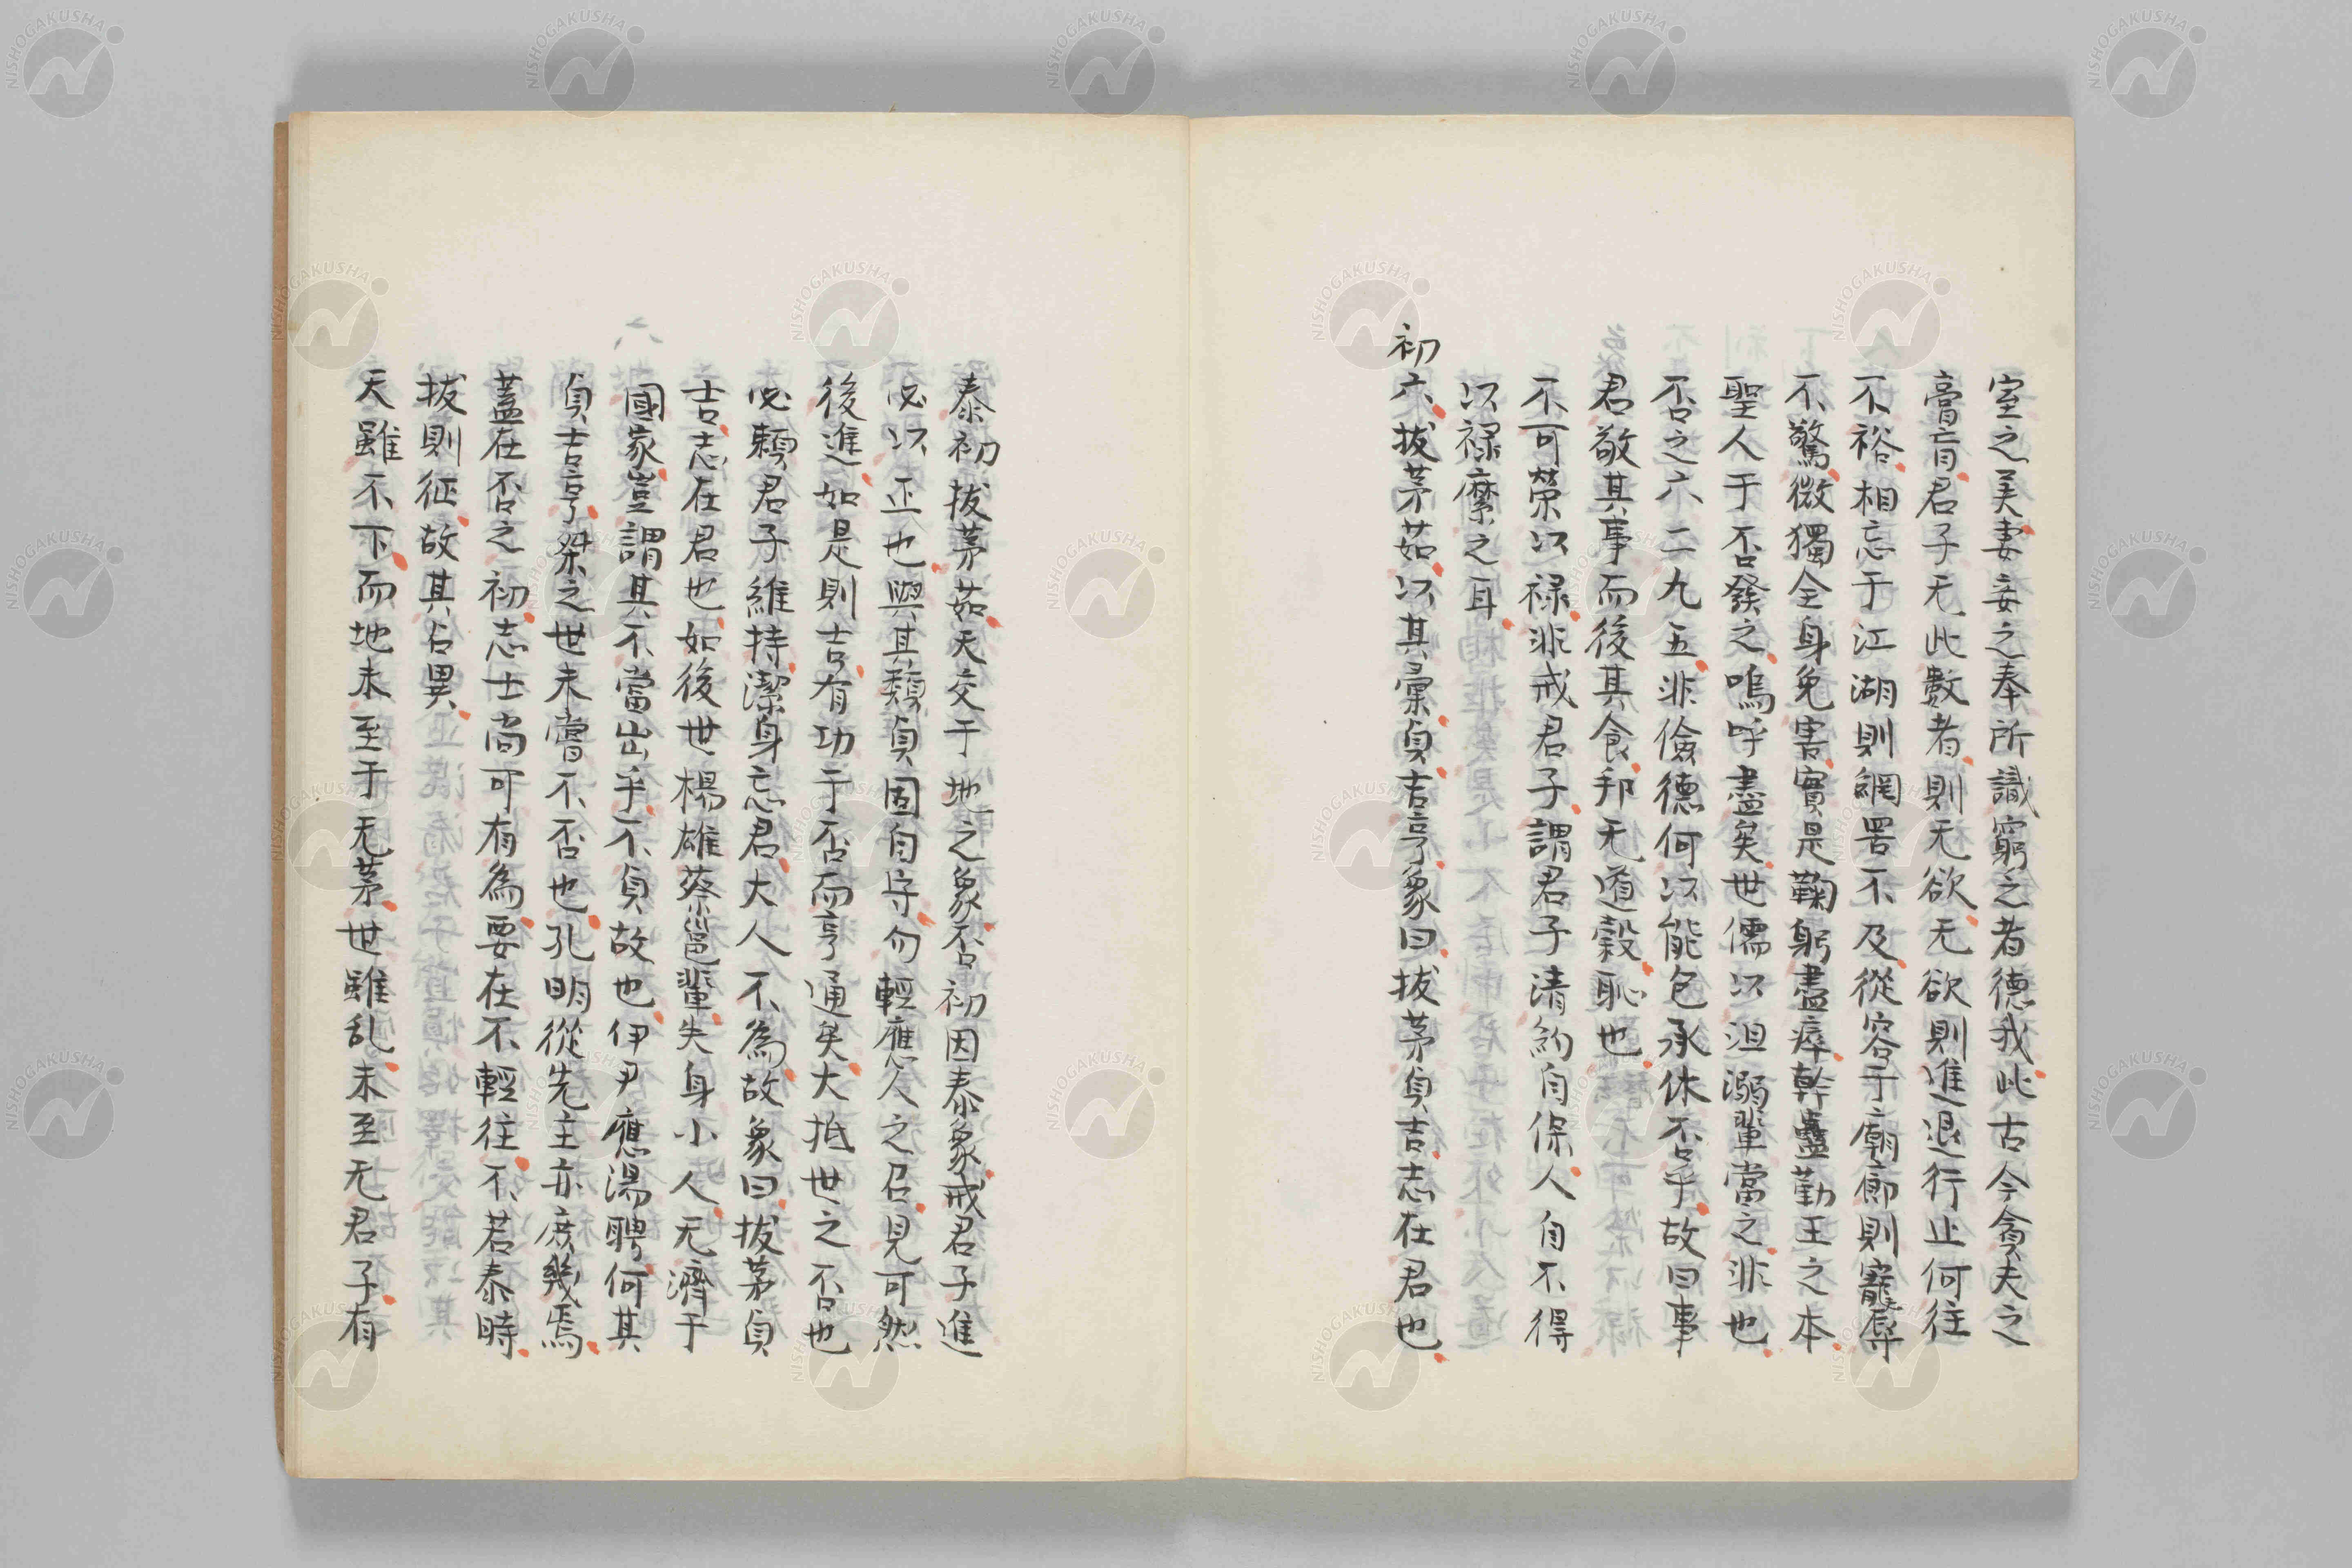 室之美妻妾之奉所識窮之者德我此古今貪夫之
膏肓君子无此數者則无欲无欲則進退行止何往
不裕相忘于江湖則網罟不及從容于廟廊則寵辱
不驚微獨全身免害實是鞠躬盡瘁幹蠱勤王之本
聖人于否發之嗚呼盡矣世儒以沮溺輩當之非也
否之六二九五非儉德何以能包承休否乎故曰事
君敬其事而後其食邦无道穀恥也
不可榮以祿非戒君子謂君子清約自保人自不得
以祿縻之耳
初六拔茅茹以其彙貞吉亨象曰拔茅貞吉志在君也
泰初拔茅茹天交于地之象否初因泰象戒君子進
必以正也與其類貞固自守勿輕應人之召見可然
後進如是則吉有功于否而亨通矣大抵世之不否也
必賴君子維持潔身忘君大人不為故象曰拔茅貞
吉志在君也如後世楊雄蔡邕輩失身小人无濟于
國家豈謂其不當出乎不貞故也伊尹應湯聘何其
貞吉亨桀之世未嘗不否也孔明從先主亦庶幾焉
蓋在否之初志士尚可有為要在不輕往不若泰時
拔則征故其占異
天雖不下而地未至于无茅世雖乱未至无君子有
NISHOGAKUSHA